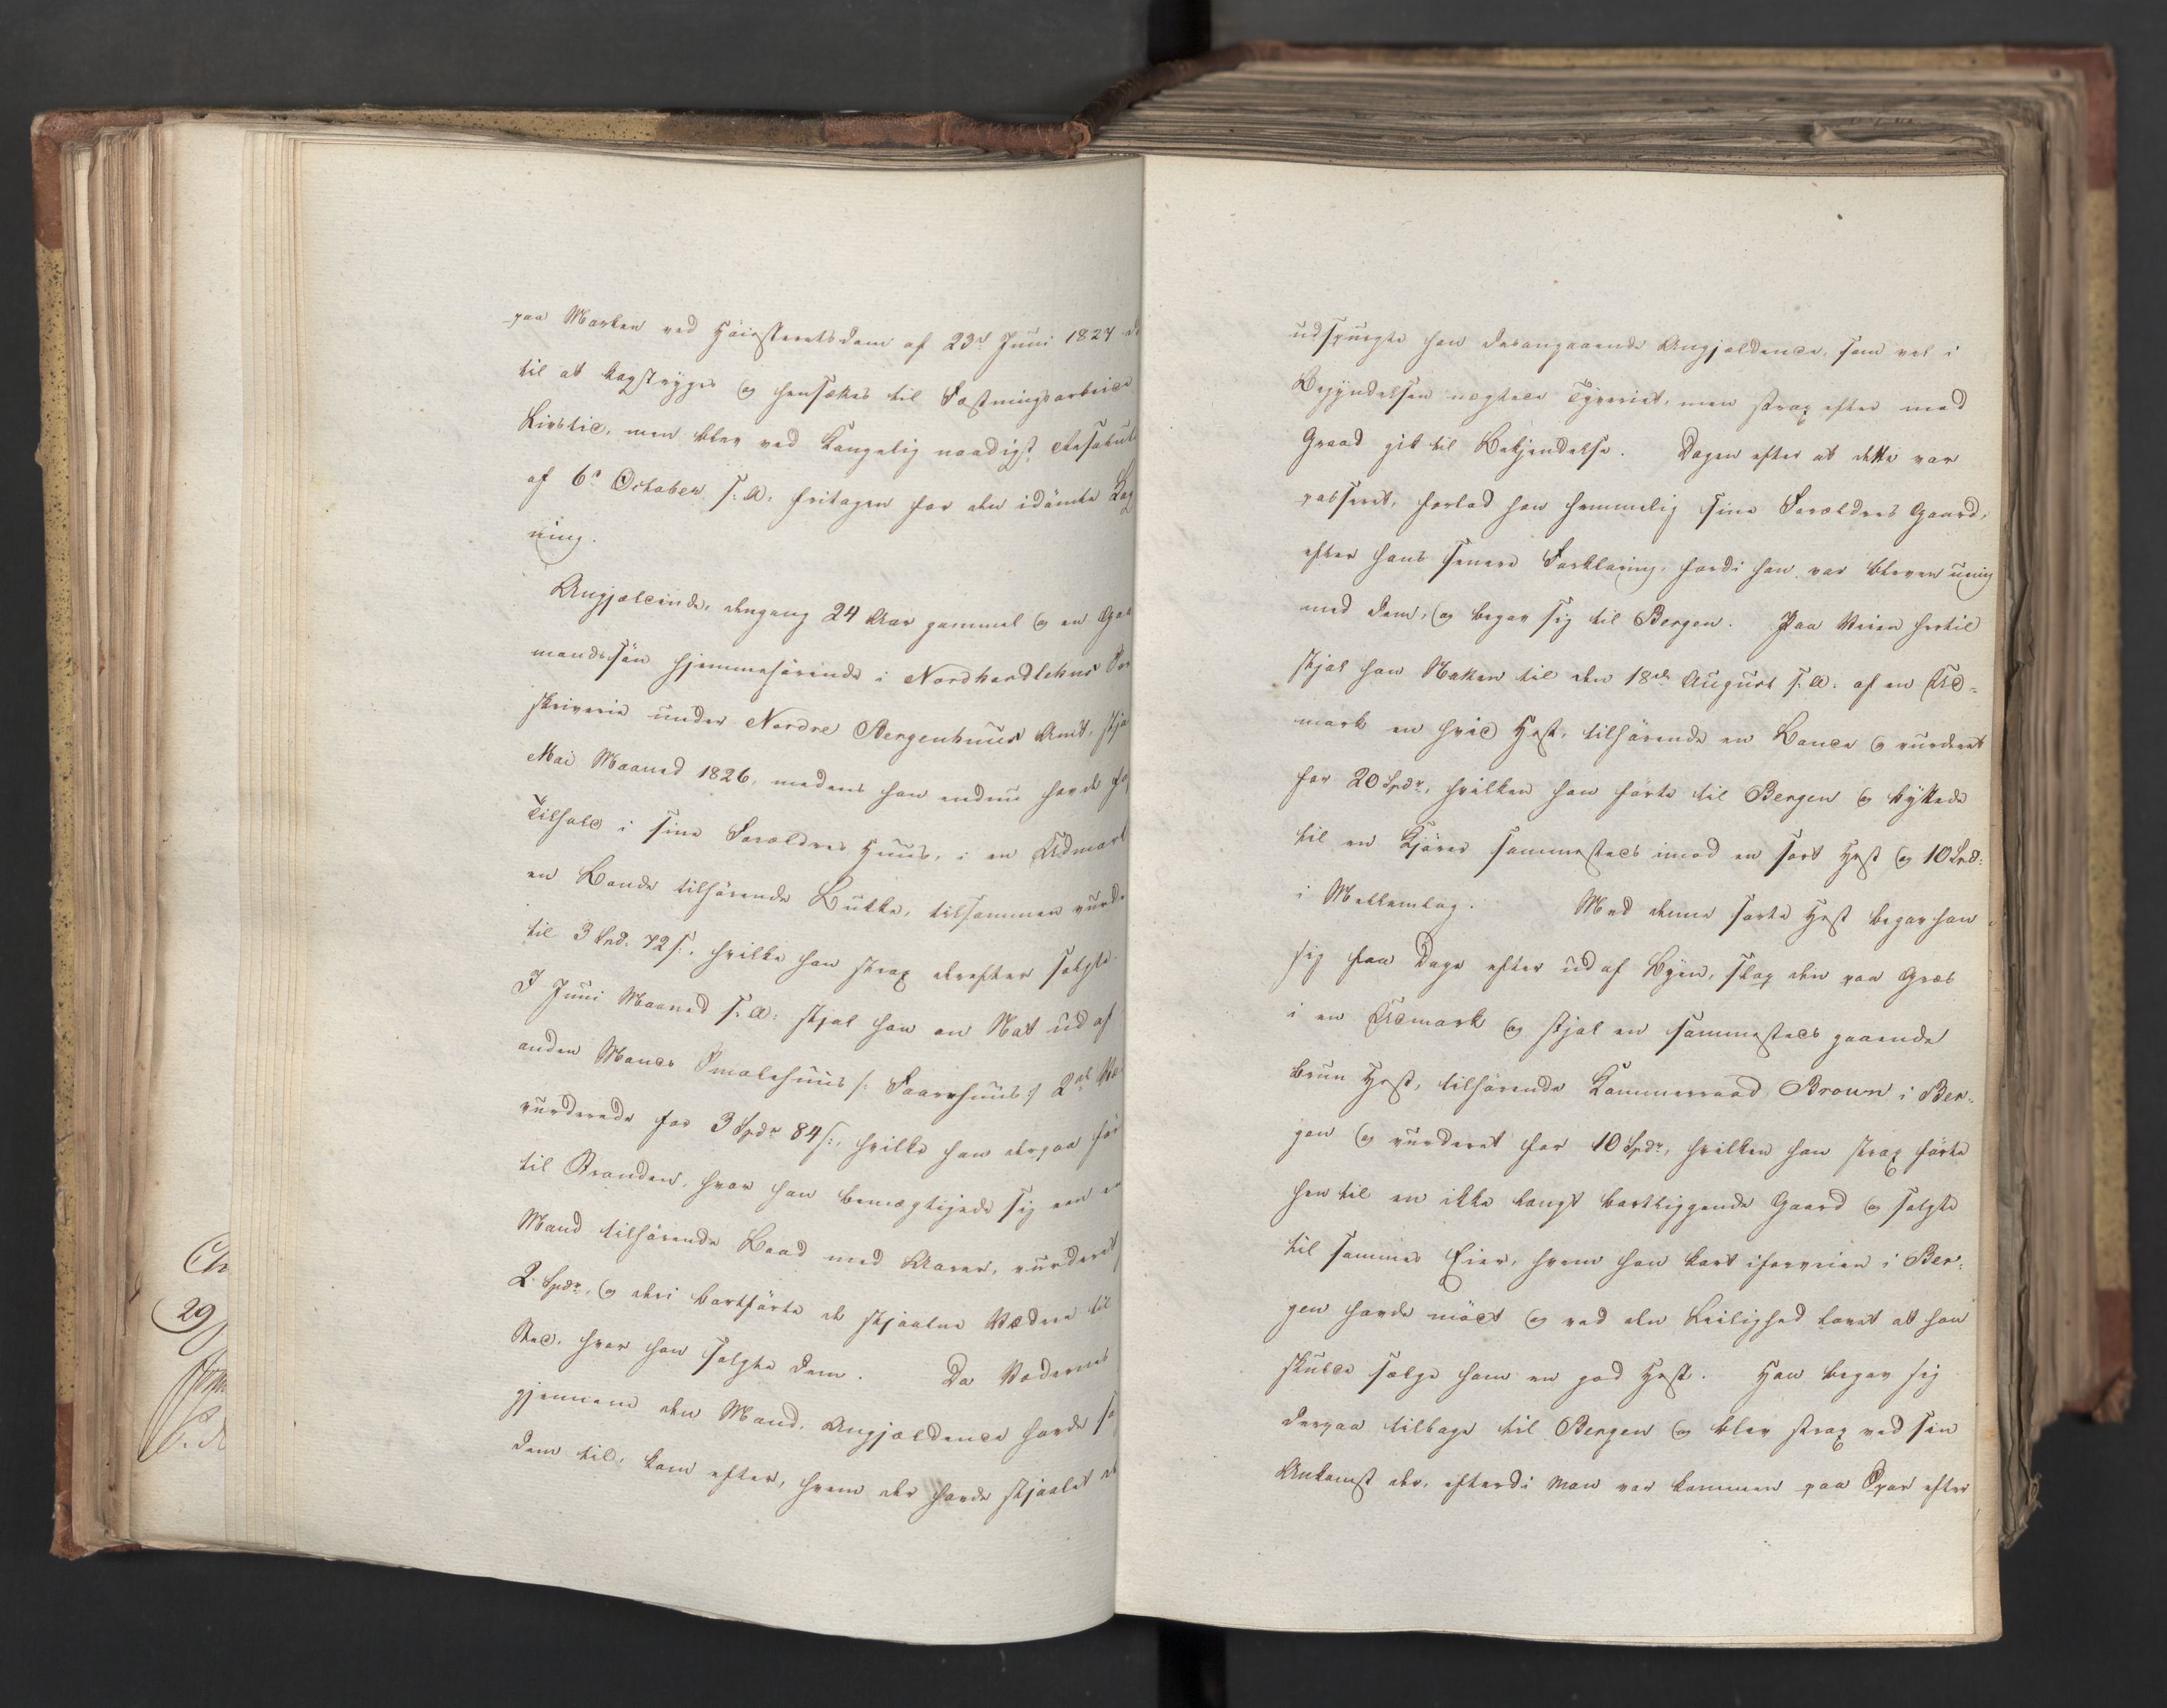 paa Marken ved Høiesteretsdom af 23de Juni 1827 dø
til at kagstryges og hensættes til Fæstningsarbeide
Livstid, men blev ved Kongelig naadigst Resolut
af 6te October s: A: fritagen for den idömte Kag
ning.
Angjældende, dengang 24 Aar gammel og en Gaa
mandssön hjemmehörende i Nordhordlehns So
skriverie under Nordre Bergenhuus Amt, stja
Mai Maaned 1826, medens han endnu havde fa
Tilhold i sine Forældres Huus, i en Udmark
en Bonde tilhörende Bukke, tilsammen vurde
til 3 Spd: 72 s:, hvilke han strax derefter solgte.
I Juni Maaned s: A: stjal han en Nat ud af
anden Mands Smalehuus /: Faarehuus :/ 2de Væ
vurderede for 3 Spdr 84 s:, hvilke han derpaa för
til Stranden, hvor han bemægtigede sig een en
Mand tilhörende Baad med Aarer, vurderet
2 Spdr, og deri bortförte de stjaalne Vædere til
Sted, hvor han solgte dem. Da Væderne
gjennem den Mand, Angjældende havde so
dem til, kom efter, hvem der havde stjaalet d
udspurgte han desangaaende Angjældende, som vel i
Begyndelsen negtede Tyveriet, men strax efter med
Graad gik til Bekjendelse. Dagen efter at dette var
passeret, forlod han hemmelig sine Forældres Gaard,
efter hans senere Forklaring, fordi han var bleven uenig
med dem, og begav sig til Bergen. Paa Veien hertil
stjal han Natten til den 18de August s: A: af en Ud-
mark en hvid Hest, tilhörende en Bonde og vurderet
for 20 Spdr, hvilken han förte til Bergen og byttede
til en Kjörer sammesteds imod en sort Hest og 10 Spd:
i Mellemlag. Med denne sorte Hest begav han
sig faa Dage efter ud af Byen, slap den paa Græs
i en Udmark og stjal en sammesteds gaaende
brun Hest, tilhörende Kammerraad Brown i Ber-
gen og vurderet for 10 Spdr, hvilken han strax förte
hen til en ikke langt bortliggende Gaard og solgte
til sammes Eier, hvem han kort iforveien i Ber-
gen havde mödt og ved den Leilighed lovet at han
skulde sælge ham en god Hest. Han begav sig
derpaa tilbage til Bergen og blev strax ved sin
Ankomst der, efterdi man var kommen paa Spor efter
Ch
29